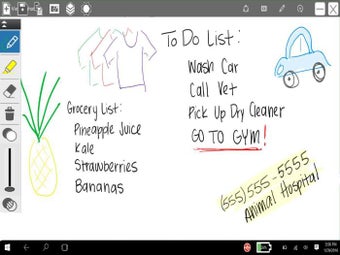 To Do List:
Wash Car
Call Vet
Pick Up Dry Cleaner
GO TO GYM!
Grocery List:
Pineapple Juice
Kale
Strawberries
Bananas
(555)555-5555
Animal Hospital